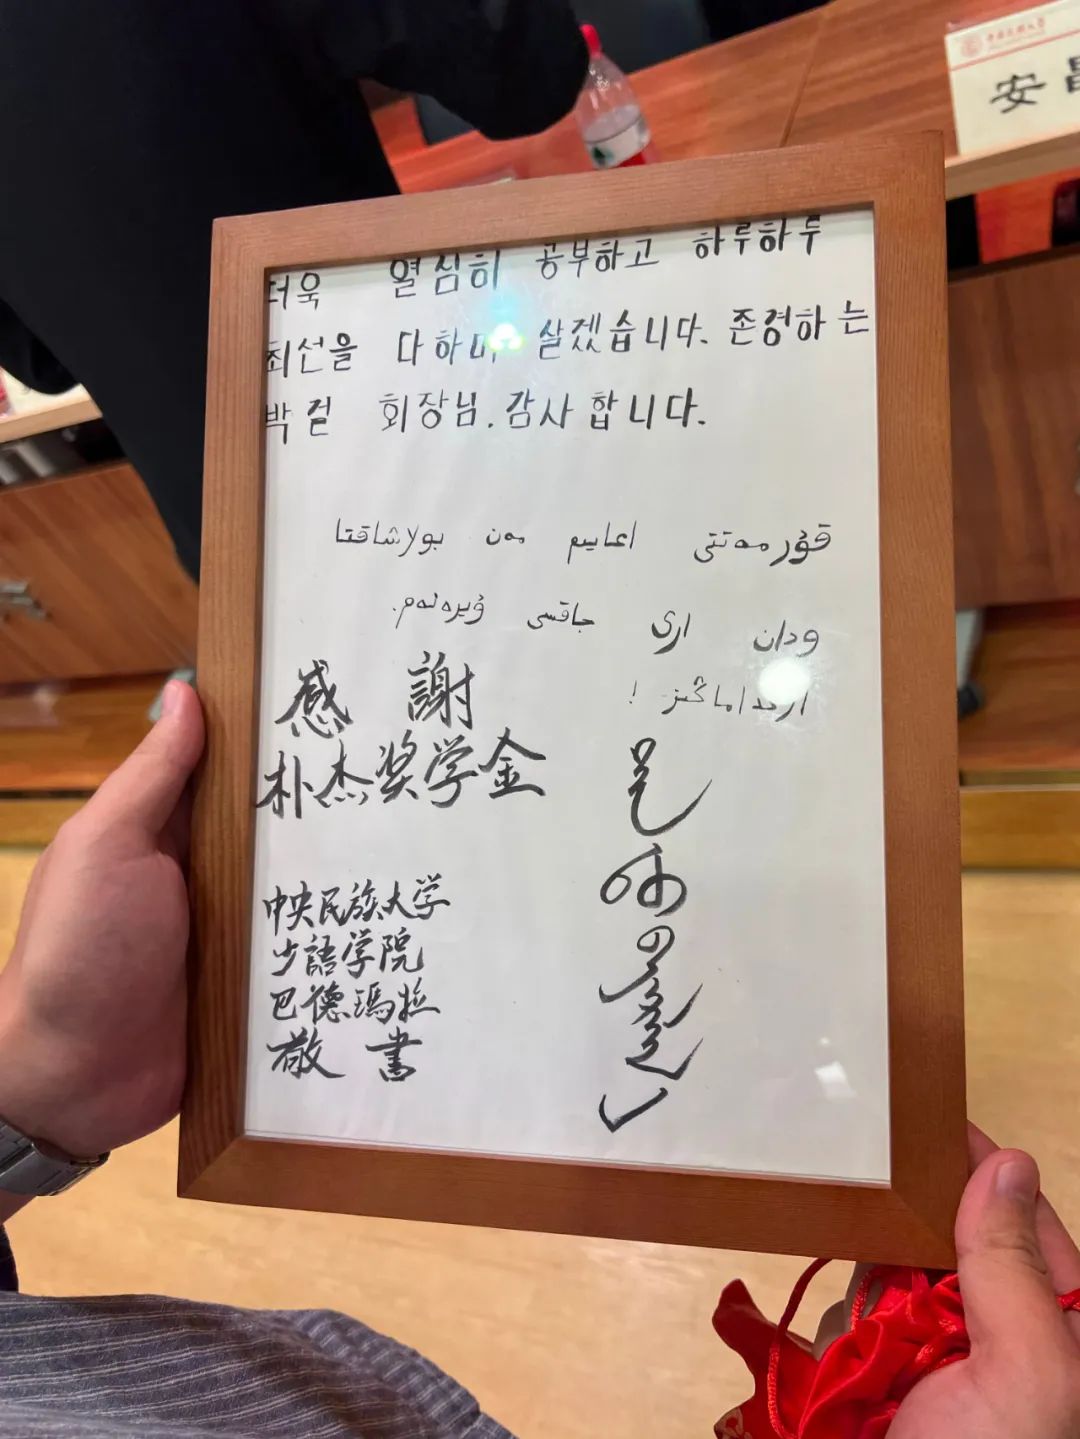 中央民族大学
安昌
더욱 열심히 공부하고 하루하루
최선을 다하며 살겠습니다. 존경하는
박걸 회장님. 감사합니다.
قۇرمەتتى اعايىم مەن بولاشاقتا
ودان ارى جاقسى ۇيرەنەم.
!
感謝
朴杰奖学金
中央民族大学
少語学院
巴德瑪拉
敬書